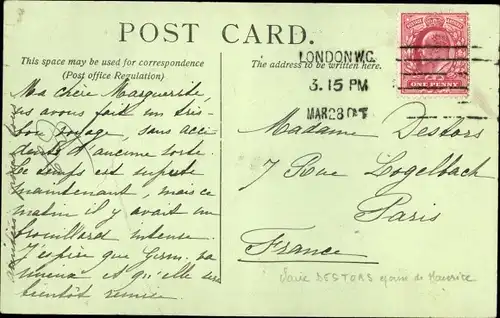 POST CARD.
This space may be used for correspondence
(Post office Regulation)
The address to be written here.
LONDON W.C.
3.15 PM
MAR 28 07
ONE PENNY
Ma chère Marguerite
ns avons fait un très
bon voyage, sans acci
dents d'aucune sorte
Le temps est superbe
maintenant, mais ce
matin il y avait un
brouillard intense.
J'espère que Germ. va
mieux et qu'elle sera
bientôt remise
Madame Destors
7 Rue Logelbach
Paris
France
DESTORS de Maurice